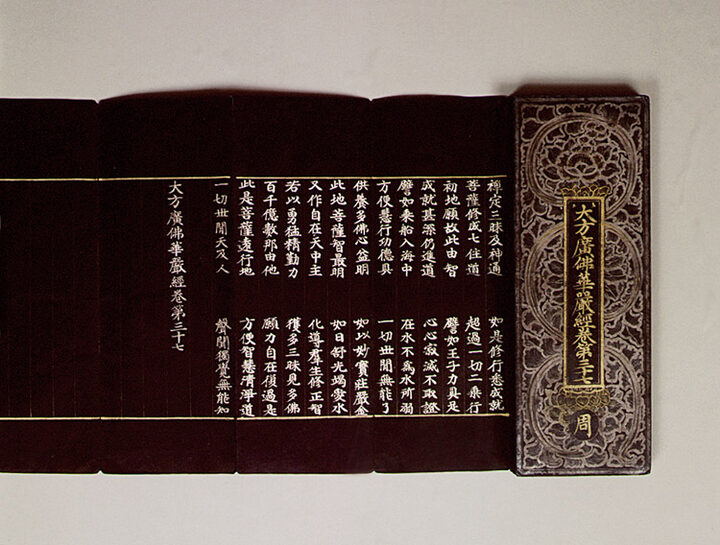 大方廣佛華嚴經卷第三十七
周
禪定三昧及神通 如是修行悉成就
菩薩修成七住道 超過一切二乘行
初地願故此由智 譬如王子力具足
成就甚深仍進道 心心寂滅不取證
譬如乘船入海中 在水不爲水所溺
方便慧行功德具 一切世間無能了
供養多佛心益明 如以妙寶莊嚴金
此地菩薩智最明 如日舒光竭愛水
又作自在天中主 化導羣生修正智
若以勇猛精勤力 獲多三昧見多佛
百千億數那由他 願力自在復過是
此是菩薩遠行地 方便智慧清淨道
一切世間天及人 聲聞獨覺無能知
大方廣佛華嚴經卷第三十七